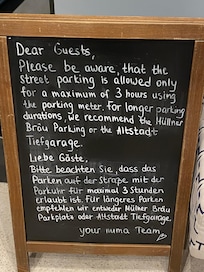 Dear Guests,
Please be aware, that the
street parking is allowed only
for a maximum of 3 hours using
the parking meter. for longer parking
durations, we recommend the Hüllner
Bräu Parking or the Altstadt
Tiefgarage.
Liebe Gäste,
Bitte beachten Sie, dass das
Parken auf der Straße mit der
Parkuhr für maximal 3 Stunden
erlaubt ist. Für längeres Parken
empfehlen wir entweder Müllner Bräu
Parkplatz oder Altstadt Tiefgarage.
your numa Team